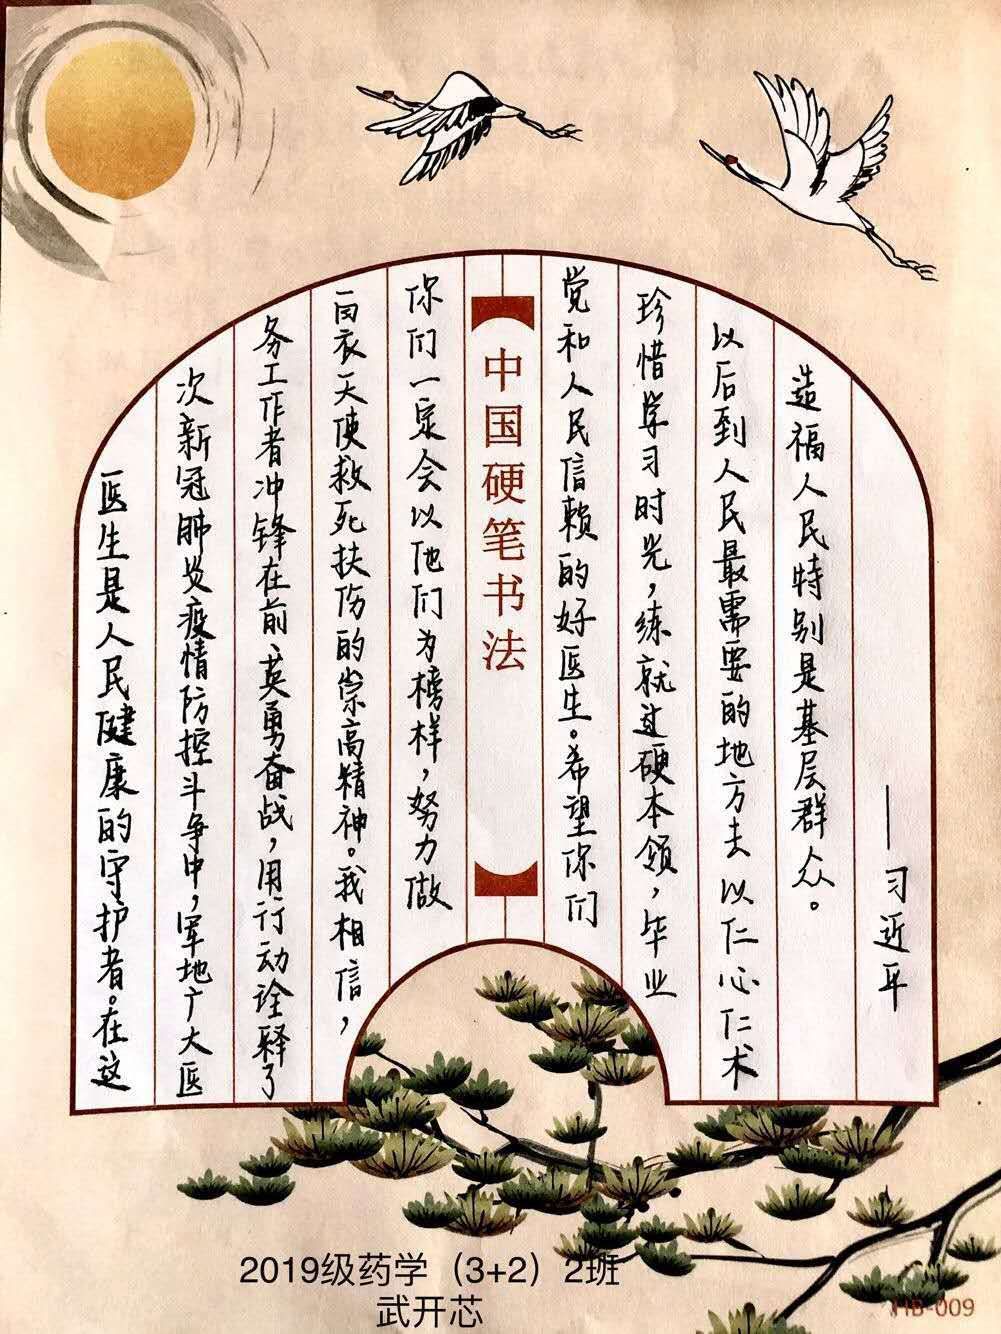 医生是人民健康的守护者。在这
次新冠肺炎疫情防控斗争中，军地广大医
务工作者冲锋在前、英勇奋战，用行动诠释了
白衣天使救死扶伤的崇高精神。我相信，
你们一定会以他们为榜样，努力做
中国硬笔书法
党和人民信赖的好医生。希望你们
珍惜学习时光，练就过硬本领，毕业
以后到人民最需要的地方去以仁心仁术
造福人民特别是基层群众。
——习近平
2019级药学（3+2）2班
武开芯
HB-009